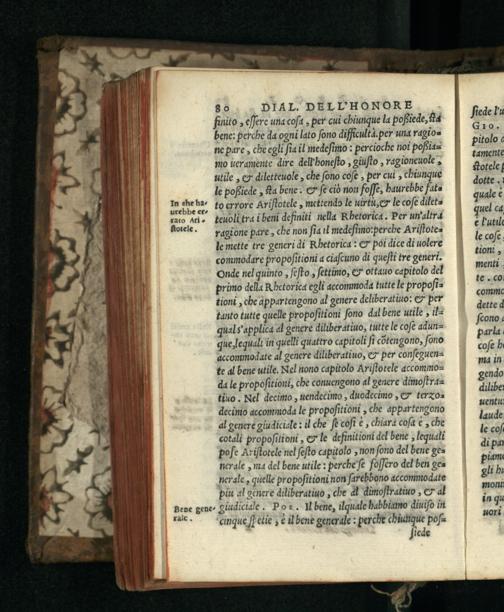 80 DIAL. DELL'HONORE
finito, essere una cosa, per cui chiunque la poßiede, sta
bene: perche da ogni lato sono difficultà. per una ragio=
ne pare, che egli sia il medesimo: percioche noi poßia=
mo ueramente dire dell'honesto, giusto, ragioneuole,
utile, & diletteuole, che sono cose, per cui, chiunque
le poßiede, sta bene. & se ciò non fosse, haurebbe fat=
In che ha-
urebbe er-
rato Ari-
stotele.
to errore Aristotele, mettendo le uirtù, & le cose dilet=
teuoli tra i beni definiti nella Rhetorica. Per un'altra
ragione pare, che non sia il medesimo: perche Aristote=
le mette tre generi di Rhetorica: & poi dice di uolere
commodare propositioni a ciascuno di questi tre generi.
Onde nel quinto, sesto, settimo, & ottauo capitolo del
primo della Rhetorica egli accommoda tutte le proposi=
tioni, che appartengono al genere deliberatiuo: & per
tanto tutte quelle propositioni sono dal bene utile, il=
qual s'applica al genere diliberatiuo, tutte le cose adun=
que, lequali in quelli quattro capitoli si cōtengono, sono
accommodate al genere diliberatiuo, & per conseguen=
te al bene utile. Nel nono capitolo Aristotele accommo=
da le propositioni, che conuengono al genere dimostra=
tiuo. Nel decimo, uendecimo, duodecimo, & terzo=
decimo accommoda le propositioni, che appartengono
al genere giudiciale: il che se così è, chiara cosa è, che
cotali propositioni, & le definitioni del bene, lequali
pose Aristotele nel sesto capitolo, non sono del bene ge=
nerale, ma del bene utile: perche se fossero del ben ge=
nerale, quelle propositioni non sarebbono accommodate
piu al genere diliberatiuo, che al dimostratiuo, & al
Bene gene-
rale.
giudiciale. Pos. Il bene, ilquale habbiamo diuiso in
cinque spetie, è il bene generale: perche chiunque pos=
siede
siede l'u
Gio.
pitolo d
tamente
stotele p
dotte.
quale è
quel ca
è l'utile
le cose
tioni,
menti
te. co
commo
dette d
scono a
parla
cose h
ma in
gendo
diliber
uentu
laude
le cos
di pa
piam
gli h
min
in qu
uori